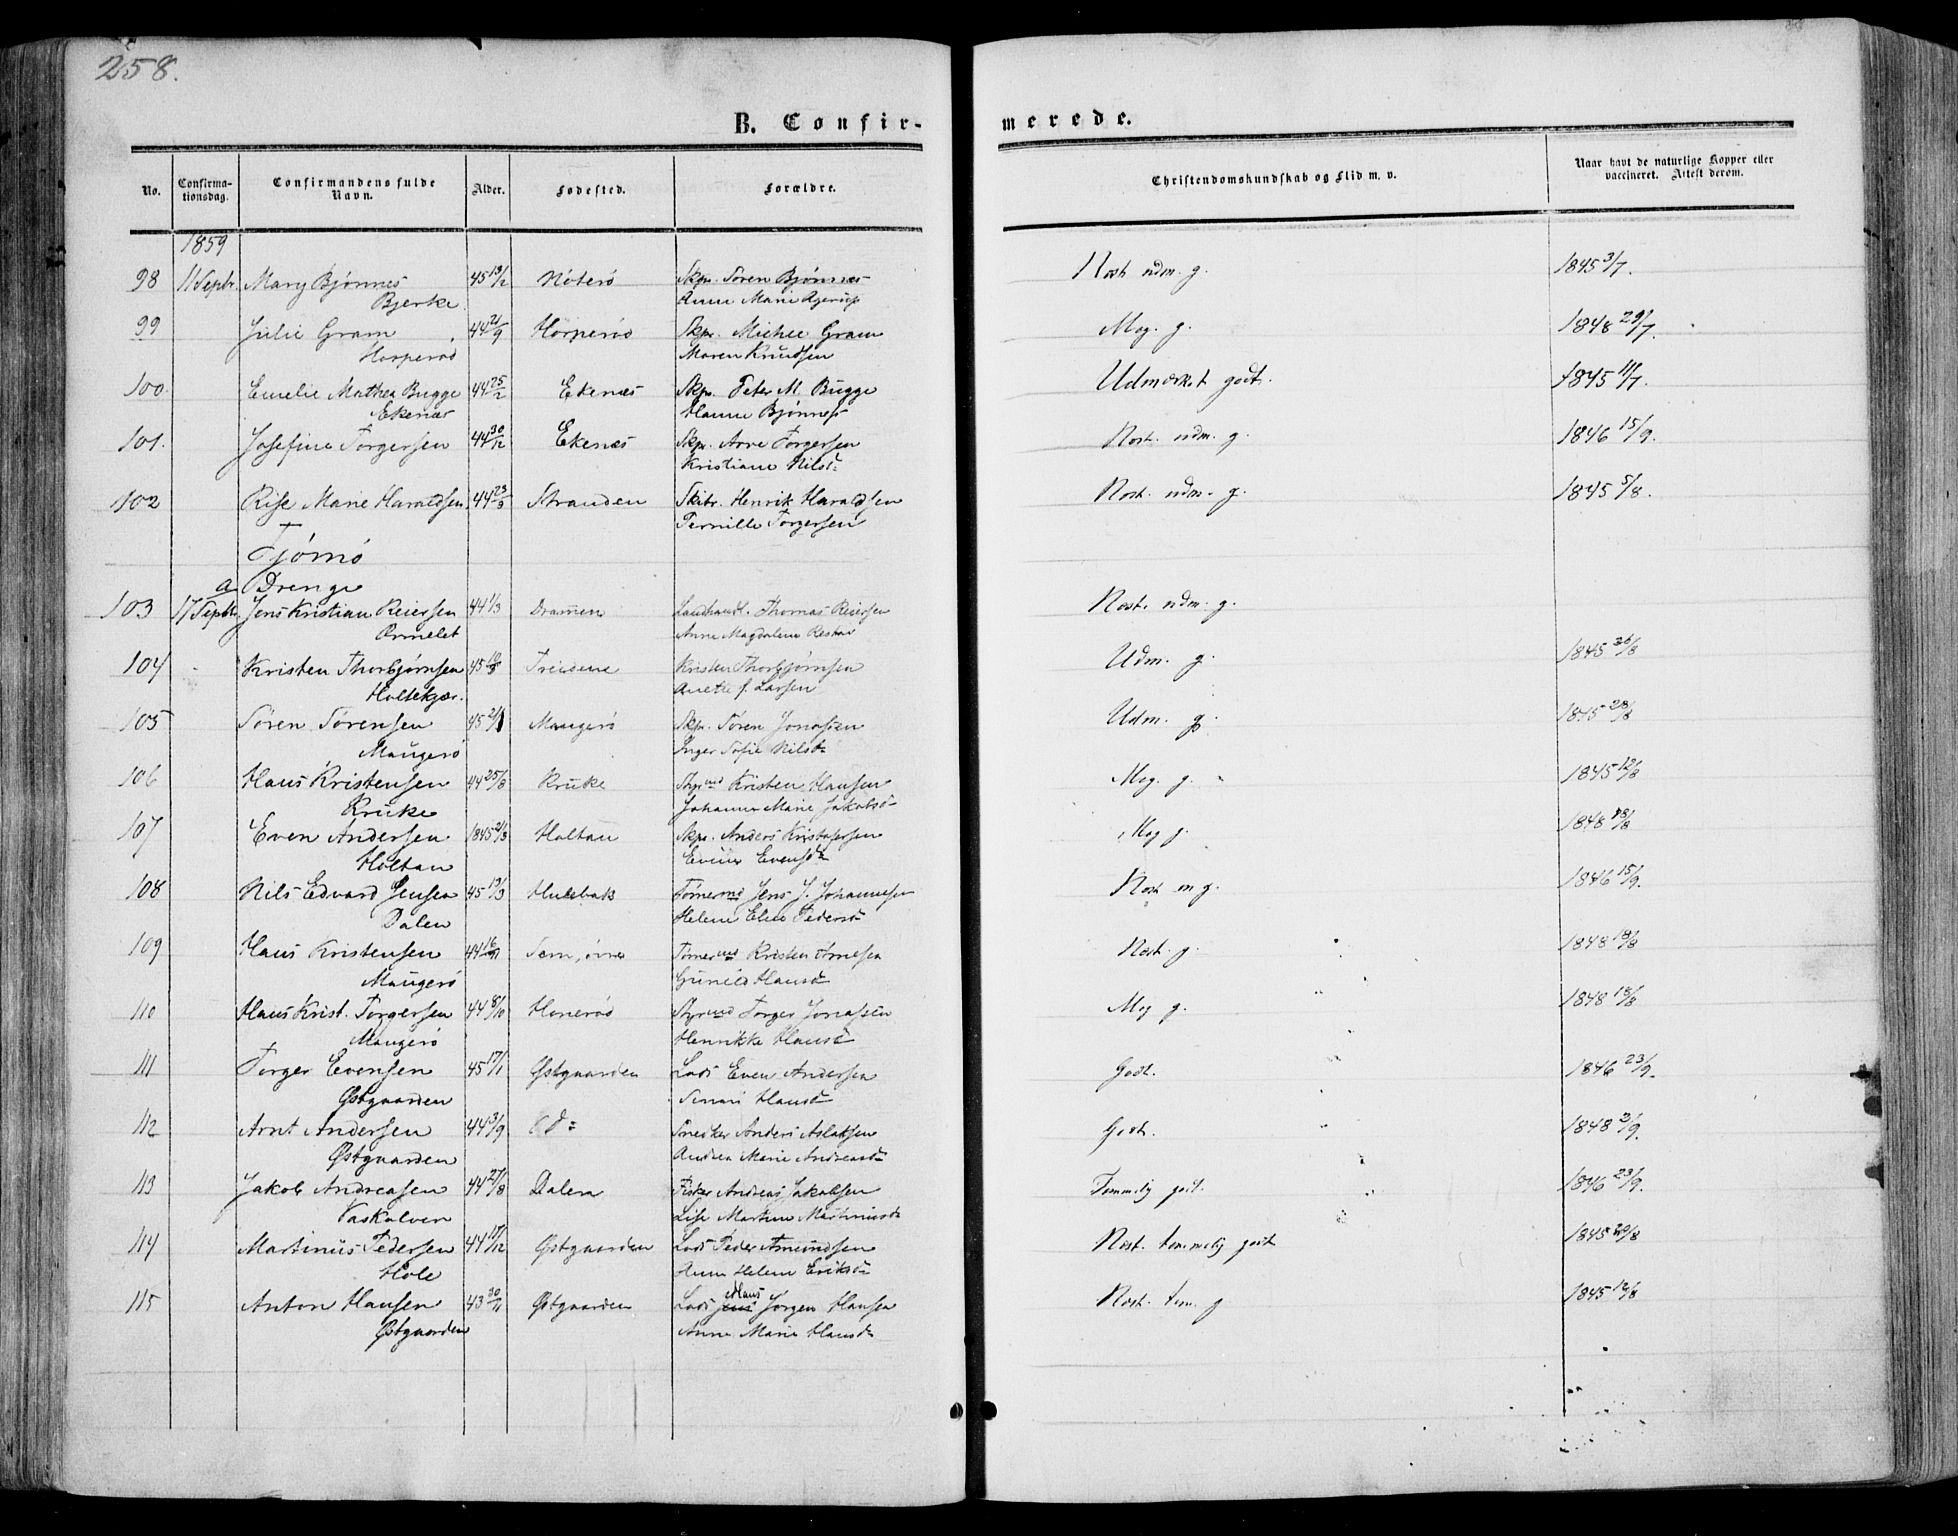 258.
B. Confir-
merede.
No. Confirma-tionsdag. Confirmandens fulde Navn. Alder. Fødested. Forældre. Christendomskundskab og Flid m. v. Naar havt de naturlige Kopper eller vaccineret. Attest derom.
1859
98 11 Septbr. Mary Bjønnes 45 13/2 Nøterø Skpr. Søren Bjønnes Nost. udm. g. 1845 3/7.
Bjerke Anne Marie Agerup
99 Julie Gram 44 21/9 Horperød Skpr. Michel Gram Mog. g. 1848 29/7.
Horperød Maren Knudsen
100. Emelie Mathea Bugge 44 25/2 Ekenæs Skpr. Peter M. Bugge Udmærket godt. 1845 11/7.
Ekenæs Hanne Bjønnes
101. Josefine Torgersen 44 30/12 Ekenæs Skpr. Arve Torgersen Nost. udm. g. 1846 15/9.
Kristiane Nilsd:
102 Rise Marie Haraldsen 44 23/3 Stranden Skibr. Henrik Haraldsen Nost. udm. g. 1845 5/8.
Pernille Torgersen
Tjømø
a Drenge
103 17 Septbr. Jens Kristian Reiersen 44 1/3 Drammen Landhandl. Thomas Reiersen Nost. udm. g.
Ormelet Anne Magdalene
104 Kristen Thorbjørnsen 45 Kristen Thorbjørnsen Udm. g. 1845 26/8
Holtekjær. Anette f. Larsen
105 Søren Sørensen 45 Maugerø Skpr. Søren Jonassen Udm. g. 1845 28/8
Maugerø Inger Sofie Nilsd:
106 Hans Kristensen 44 25/8 Kruke Styrmd Kristen Hansen Mog. g. 1845 12/8
Kruke Johanne Marie Jakobsd:
107 Even Andersen 1845 2/3 Holtan Skpr. Anders Kristofersen Mog g. 1848 18/8
Holtan Evensd:
108 Nils Edvard Jensen 45 19/3 Hulebak Tømermd Jens J. Johannesen Nost m g. 1846 15/9.
Dalen Helene Elise Pedersd:
109 Hans Kristensen 44 16/11 Sem, øvre Tømermd Kristen Nost. g. 1848 18/8
Maugerø Gunild Hansd:
110 Hans Krist. Torgersen 44 8/10 Honerød Styrmd Torger Jonassen Mog g. 1848 18/8
Maugerø Henrikke Hansd:
111 Torger Evensen 45 17/1 Østgaarden Lods Even Andersen Godt. 1846 23/9.
Østgaarden Hansd:
112 Arnt Andersen 44 3/9 Snedker Anders Aslaksen Godt. 1848 2/9.
Østgaarden Andrea Marie Andreasd:
113 Jakob Andreasen 44 27/8 Dalen Fisker Andreas Jakobsen Temmelig godt. 1846 23/9.
Vaskalven Lise Martine Martinusd:
114 Martinus Pedersen 44 17/12 Østgaarden Lods Peder Amundsen Nost. temmelig godt 1845 20/8
Hole Anne Helene Eriksd:
115 Anton Hansen 43 30/11 Østgaarden Lods Hans Jørgen Hansen Nost. tem. g 1845 12/8
Østgaarden Anne Marie Hansd: